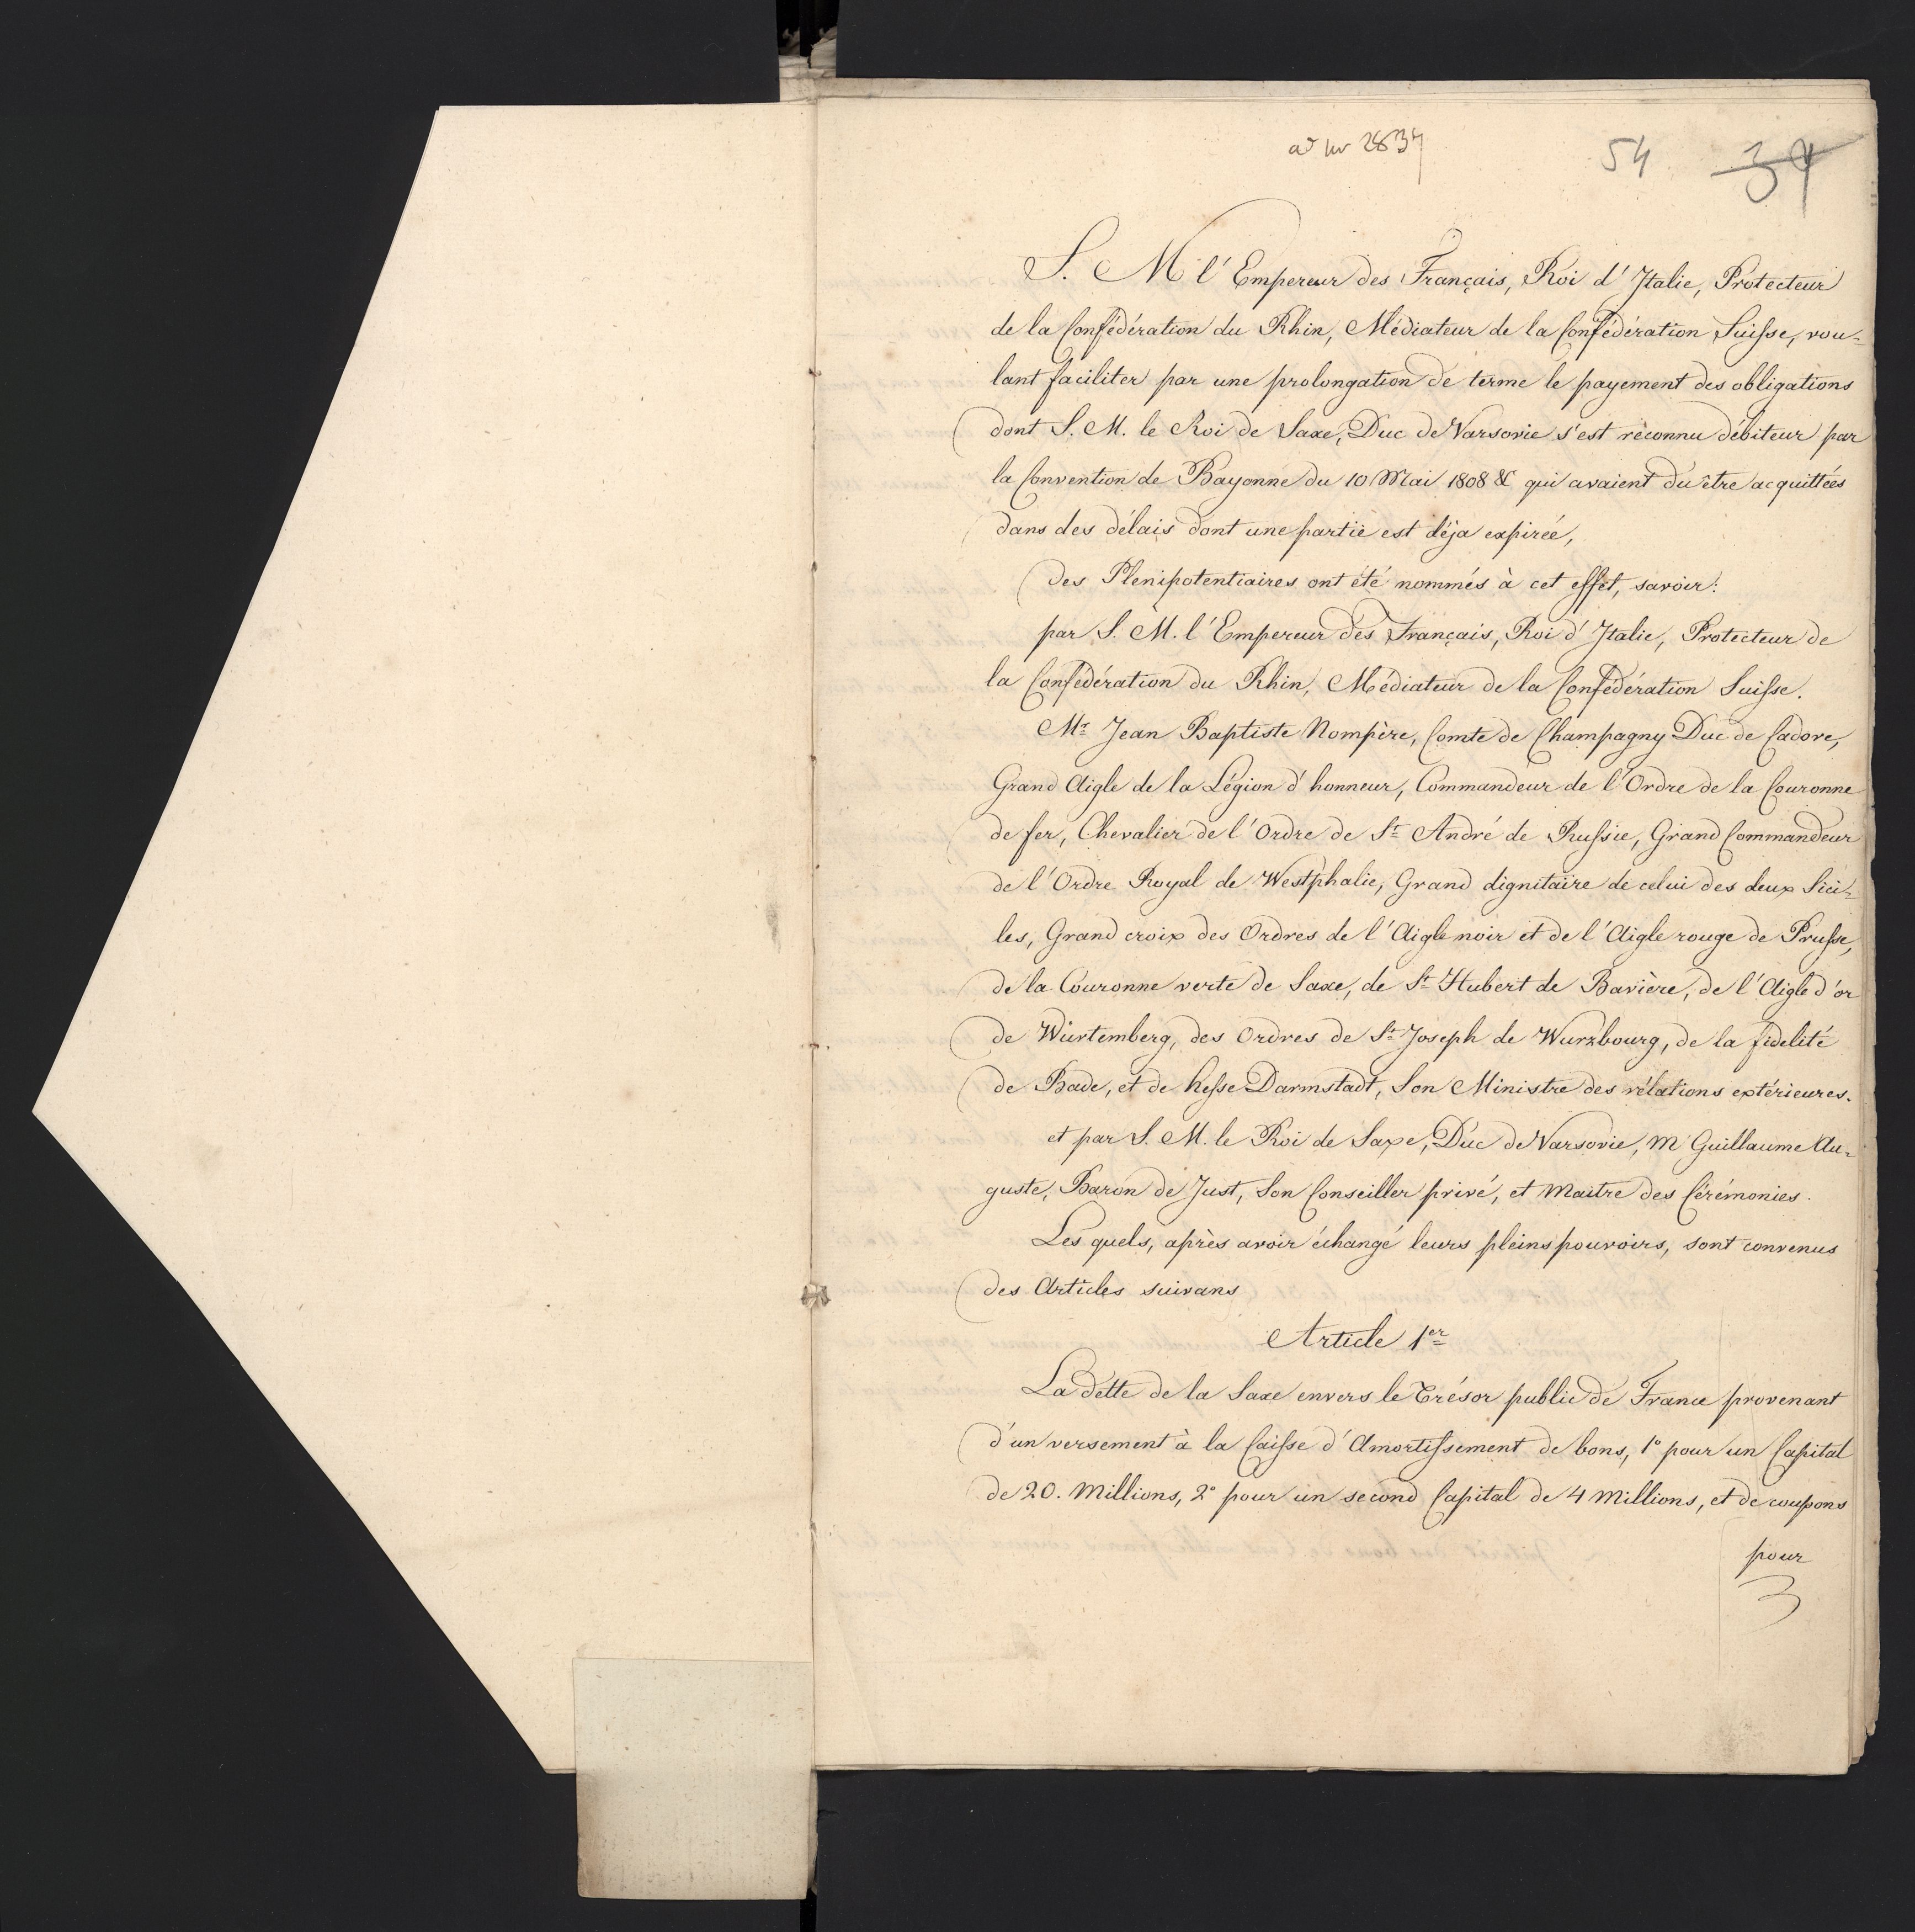 ad nr 2834
54 34
S. M l'Empereur des Français, Roi d'Italie, Protecteur
de la Confédération du Rhin, Médiateur de la Confédération Suisse, vou=
lant faciliter par une prolongation de terme le payement des obligations
dont S. M. le Roi de Saxe, Duc de Varsovie s'est réconnu débiteur par
la Convention de Bayonne du 10 Mai 1808 & qui avaient du être acquittées
dans des délais dont une partie est déja expirée,
des Plenipotentiaires ont été nommés à cet effet, savoir:
par S. M. l'Empereur des Français, Roi d'Italie, Protecteur de
la Confédération du Rhin, Médiateur de la Confédération Suisse.
Mr Jean Baptiste Nompère, Comte de Champagny Duc de Cadore,
Grand Aigle de la Légion d'honneur, Commandeur de l'Ordre de la Couronne
de fer, Chevalier de l'Ordre de St André de Russie, Grand Commandeur
de l'Ordre Royal de Westphalie, Grand dignitaire de celui des deux Sici=
les, Grand croix des Ordres de l'Aigle noir et de l'Aigle rouge de Prusse,
de la Couronne verte de Saxe, de St Hubert de Bavière, de l'Aigle d'or
de Würtemberg, des Ordres de St Joseph de Wurzbourg, de la fidelité
de Bade, et de hesse Darmstadt, Son Ministre des rélations extérieures.
et par S. M. le Roi de Saxe, Duc de Varsovie, M Guillaume Au=
guste, Baron de Just, Son Conseiller privé, et Maitre des Cérémonies.
Les quels, après avoir échangé leurs pleins pouvoirs, sont convenus
des Articles suivans
Article 1er
La dette de la Saxe envers le Trésor public de France provenant
d'un versement à la Caisse d'Amortissement de bons, 1° pour un Capital
de 20. Millions, 2° pour un second Capital de 4 Millions, et de coupons
pour